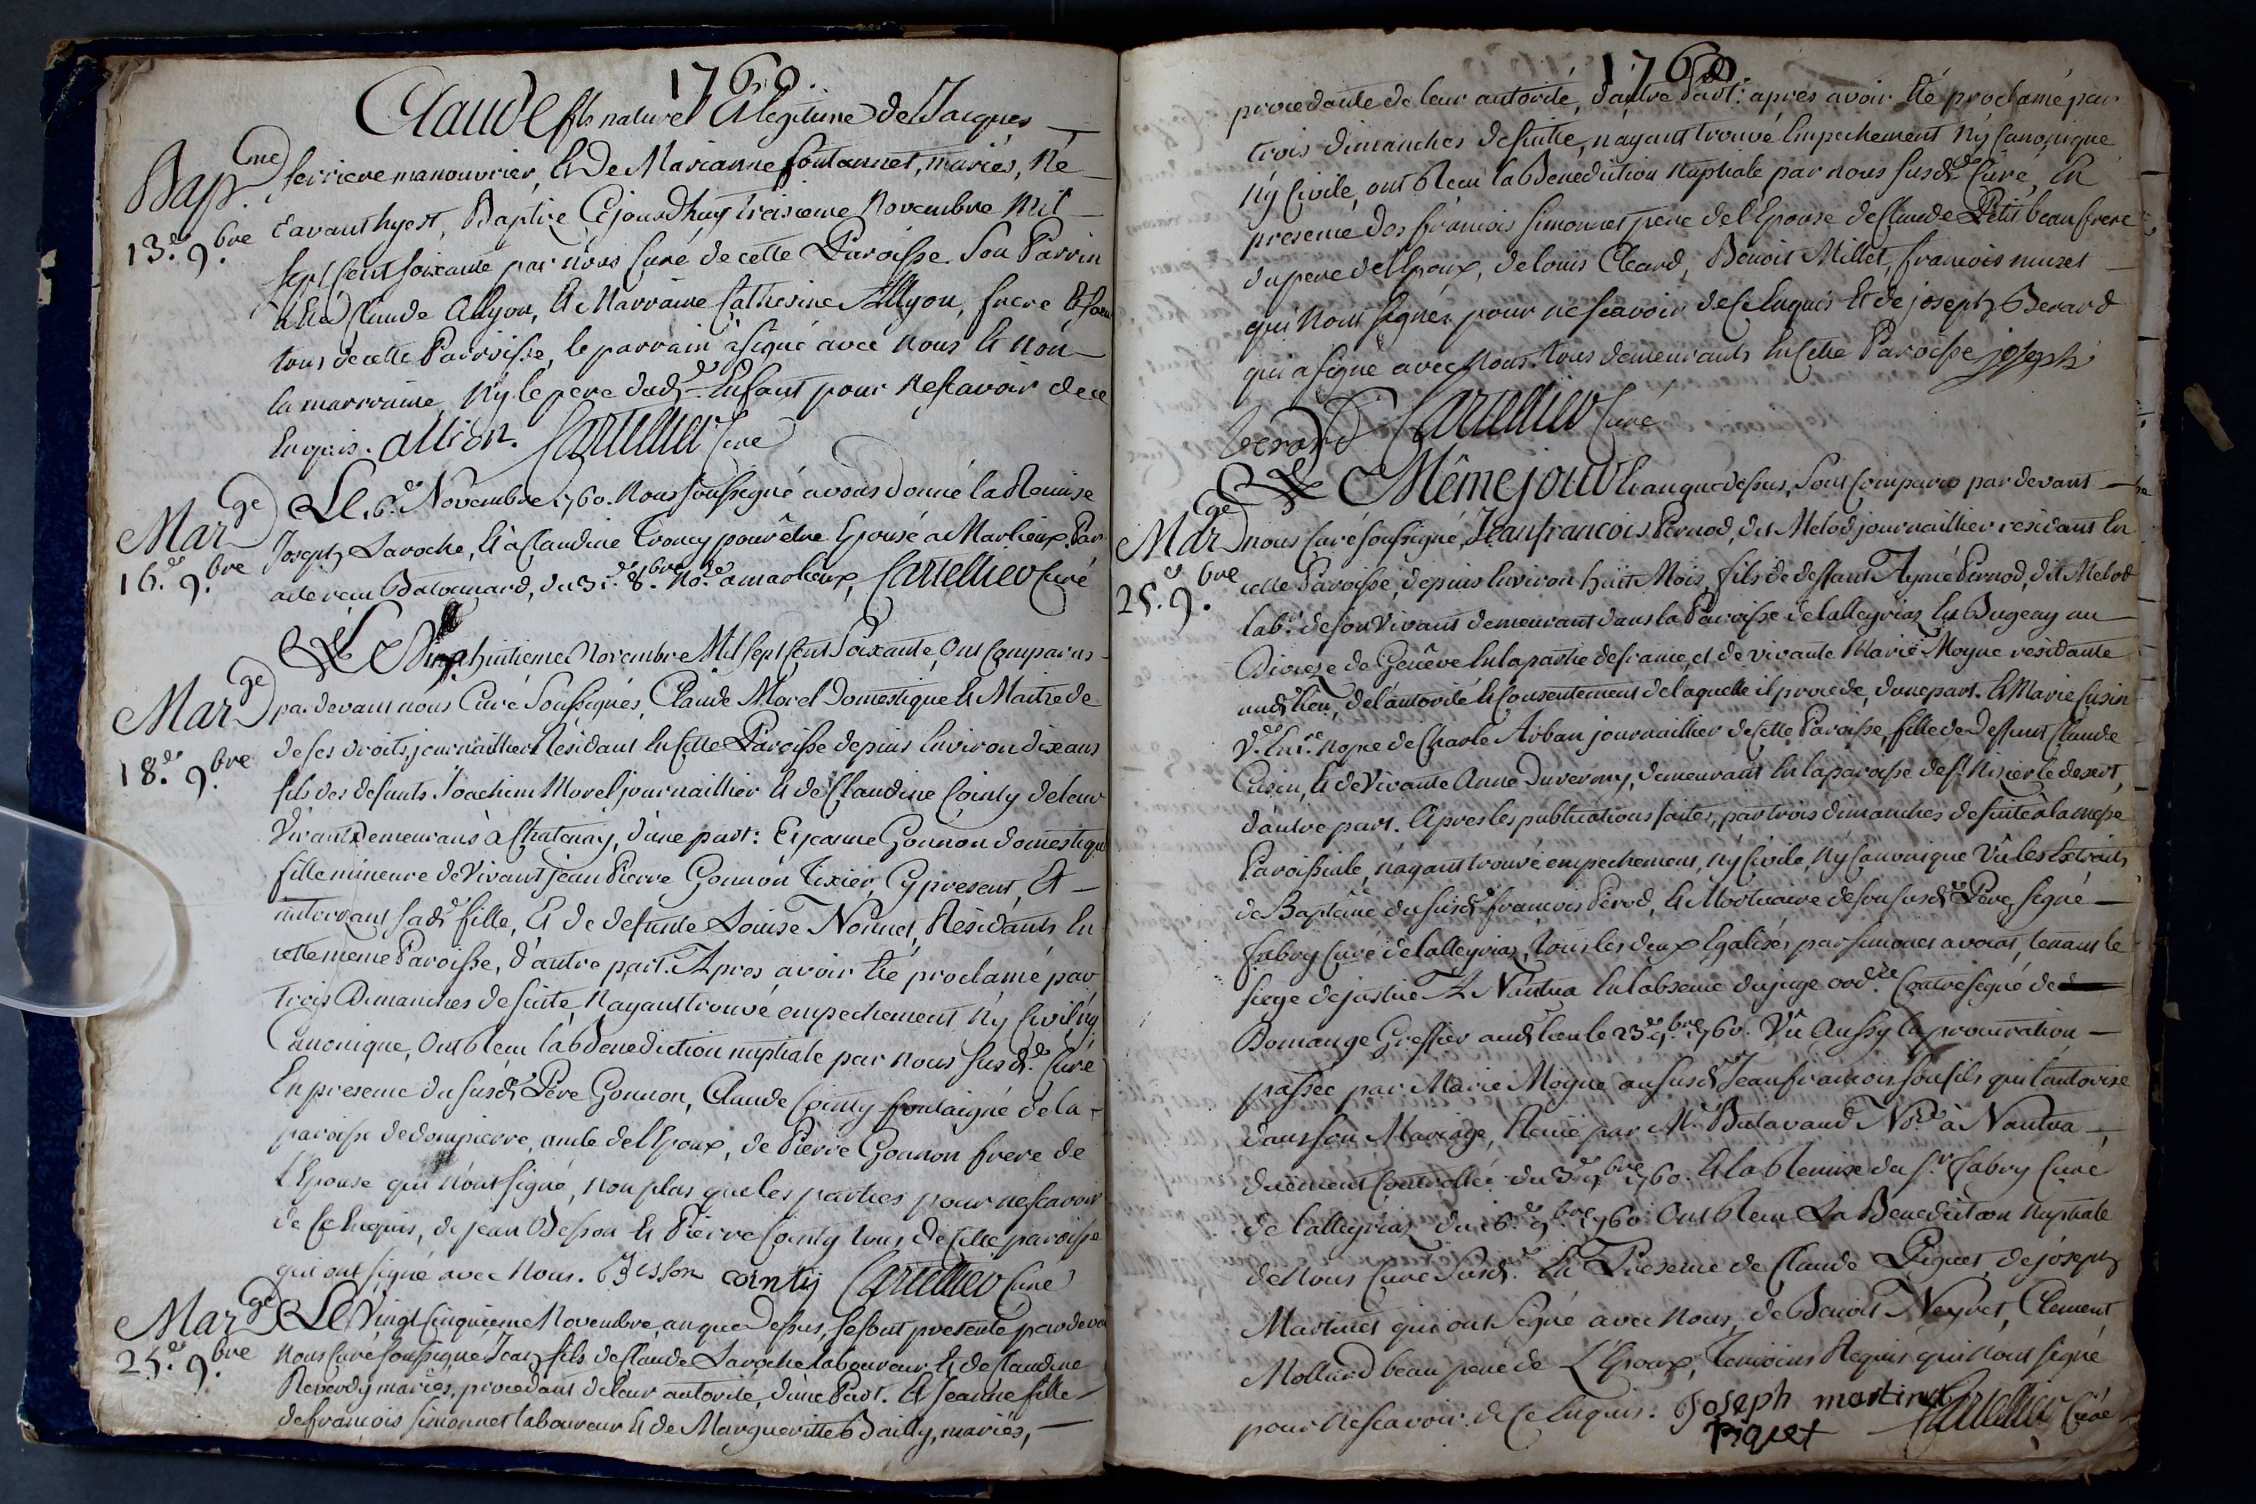 1760.
Claude fils naturel et legitime de Jacques
Bap.me ferriere manouvrier, et De Marianne fontannet, mariés, Né
13.e 9.bre avanthyest, Baptise Cejourdhuy treisieme Novembre Mil
sept cent soixante par nous Curé de cette Paroisse. Son Parrin
a été Claude Allyon, et Marraine Catherine Allyon, frere et soeur
tous de cette Parroisse, le parrain a signé avec nous et non
la marraine, Ny le pere dudt Enfant pour Nescavoir de ce
Enquis. allion. Cartellier Curé
Mar.ge Le 16.e Novembre 1760. Nous soussigné avons donné la Remise
Joseph Laroche, et à Claudine Troncy pour être Epousé a Marlieux, Par
16.e 9.bre acte recu Batonnard, du 31.e 8.bre No.re a marlieux, Cartellier Curé
Le Dixhuitieme Novembre Mil sept Cent Soixante, Ont Comparus
Mar.ge pardevant nous Curé Soussignés, Claude Morel Domestique et Maitre de
18.e 9.bre de ses droits, journaillier Résidant En Cette Paroisse depuis Environ dix ans
fils des defunts Joachim Morel journaillier et de Claudine Cointy de leur
Vivant Demeurans à Chatenay, d'une part: Et jeanne Gonnon domestique
fille mineure de Vivant jean Pierre Gonnon Tixier, Cy present, Et
autorisant sadt fille, Et de defunte Louise Nonnet, Résidants En
cette meme Paroisse, d'autre part. Apres avoir été proclamé par
Trois Dimanches de suite, Nayant trouvé empechement Ny Civil ny
Canonique, Ont Recu la Benediction nuptiale par nous susdt. Curé
En presence du susdt Pere Gonnon, Claude Cointy de la
paroisse de dompierre, oncle de l'Epoux, de Pierre Gonnon frere de
l'Epouse qui n'ont signé, non plus que les parties pour nescavoir
de Ce Enquis, de jean Besson et Pierre Cointy tous de Cette paroisse
qui ont signé avec Nous. Besson cointy Cartellier Curé
Mar.ge Le Vingt Cinquieme Novembre, an que Dessus, se sont presenté pardevant
25.e 9.bre Nous Curé soussigné Jean fils de Claude Laroche laboureur et de Claudine
Reverdy mariés, procedant de leur autorité, d'une Part. Et Jeanne fille
de françois Simonnet laboureur et de Marguerittes Bailly, mariés,
1760.
procedante de leur autorité, d'autre Part: apres avoir été proclamé par
trois dimanches desuitte, nayant trouvé Empechement Ny Canonique
Ny Civile, ont Recu la Benediction Nuptiale par nous susdt Curé, En
presence des françois Simonnet pere de l'Epouse de Claude Petit beaufrere
du pere de l'Epoux, de louis Cleard, Benoit Millet, francois muset
qui N'ont signer pour nescavoir de Ce Enquis et de joseph Berard
qui a signé avec Nous. Tous demeurants En Cette Paroisse joseph
berard Cartellier Curé
Le Même jour Et an que dessus, Sont Comparus par devant
Mar.ge nous Curé soussigné, Jean francois Pernod, dit Melod journaillier résidant En
25.e 9.bre cette Paroisse, depuis Environ huit Mois, fils de deffunt Aymé Pernod, dit Melod
lab.r de son Vivant demeurant dans la Paroisse de lalleyriaz En Bugeay au
Dioceze de Genêve En la partie de france, et de vivante Marie Moyne résidante
audt lieu, de l'autorité et Consentement de laquelle il procede, d'une part. Et Marie Cusin
V.e En 1.re Nopce de Charle Arban journaillier de Cette Paroisse, fille de Deffunt Claude
Cusin, et de Vivante Anne Duvernay, demeurant En la paroisse de St Nizier le desert,
d'autre part. Apres les publications faites, par trois dimanches de suite à la messe
Paroissiale, n'ayant trouvé empechement, ny Civile, Ny Canonique Vû les Extraits
de Baptême du susdt francois Pérod, et Mortuaire de son susdt Pere, signé
fabry Curé de lalleyriaz, tous les deux Egalisés par simonet avocat, tenant le
siege de justice A Nantua En l'absence du juge ord.re Contresigné de
Bomange Greffier audt lieu le 23.e 9.bre 1760. Vû Aussy la procuration
passée par Marie Moyne au susdt Jean francois son fils qui l'autorise
dans son Mariage, Recue par M.e Butavand No.re à Nantua
duement Controllée du 3.e 9.bre 1760. Et la Remise du s.r fabry Curé
de lalleyriaz du 16.e 9.bre 1760. Ont Recu La Benediction Nuptiale
de Nous Curé susdt. En Presence de Claude Piquet, de joseph
Martinet qui ont Signé avec Nous, de Benoit Neyret, Clement
Mollard beau pere de L'Epoux, Temoins Requis qui N'ont signé
pour Nescavoir de Ce Enquis. Joseph martinet Cartellier Curé
Piquet